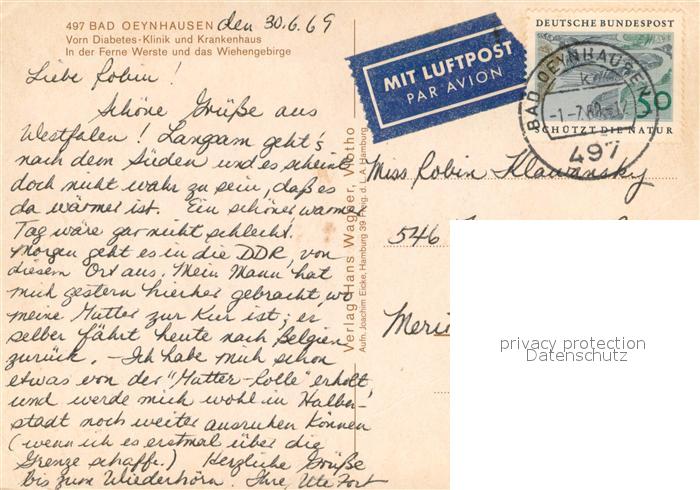 497 BAD OEYNHAUSEN
Vorn Diabetes-Klinik und Krankenhaus
In der Ferne Werste und das Wiehengebirge
den 30.6.69
Liebe Robin!
Schöne Grüße aus
Westfalen! Langsam geht's
nach dem Süden und es scheint
doch nicht wahr zu sein, daß es
da wärmer ist. Ein schöner warmer
Tag wäre gar nicht schlecht.
Morgen geht es in die DDR, von
diesem Ort aus. Mein Mann hat
mich gestern hierher gebracht, wo
meine Mutter zur Kur ist; er
selber fährt heute nach Belgien
zurück. – Ich habe mich schon
etwas von der "Mutter-Rolle" erholt
und werde mich wohl in Halber-
stadt noch weiter ausruhen können
(wenn ich es erstmal über die
Grenze schaffe!) Herzliche Grüße
bis zum Wiederhörn. Ihre, Ute
Verlag Hans Wagner, Vlotho
Aufn. Joachim Eicke, Hamburg 39 Freig. d. L.A. Hamburg
MIT LUFTPOST
PAR AVION
DEUTSCHE BUNDESPOST
50
SCHÜTZT DIE NATUR
BAD OEYNHAUSEN
497
Miss Robin Klawansky
546
Meri
privacy protection
Datenschutz